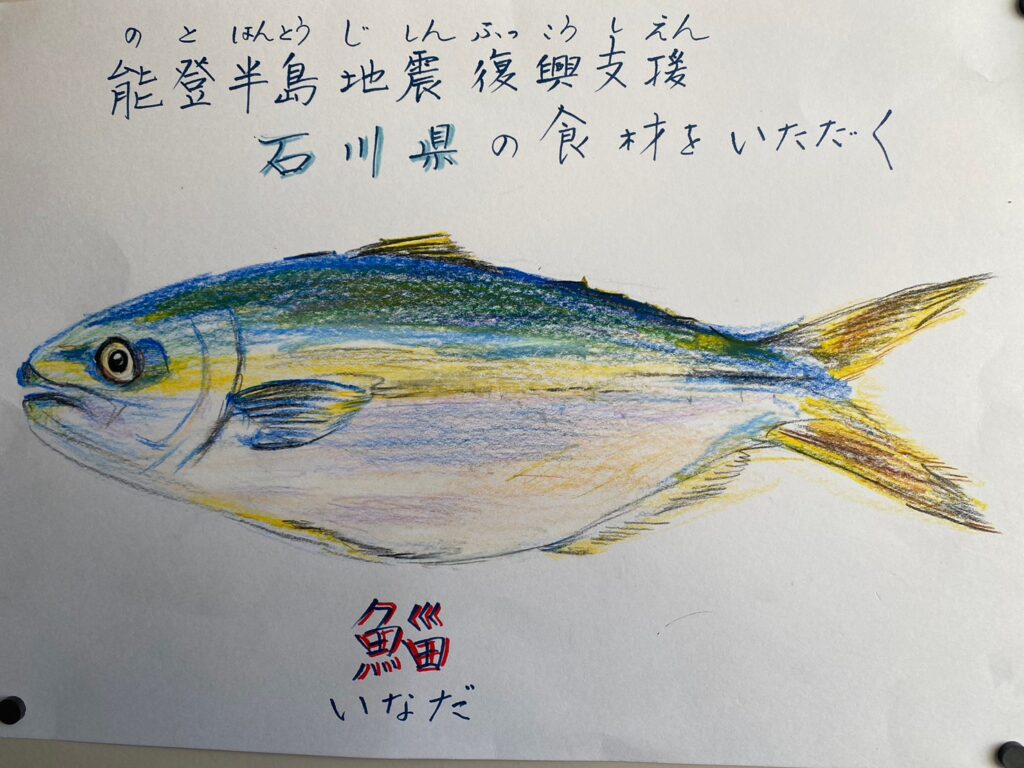 のとはんとうじしんふっこうしえん
能登半島地震復興支援
石川県の食材をいただく
鯔
いなだ